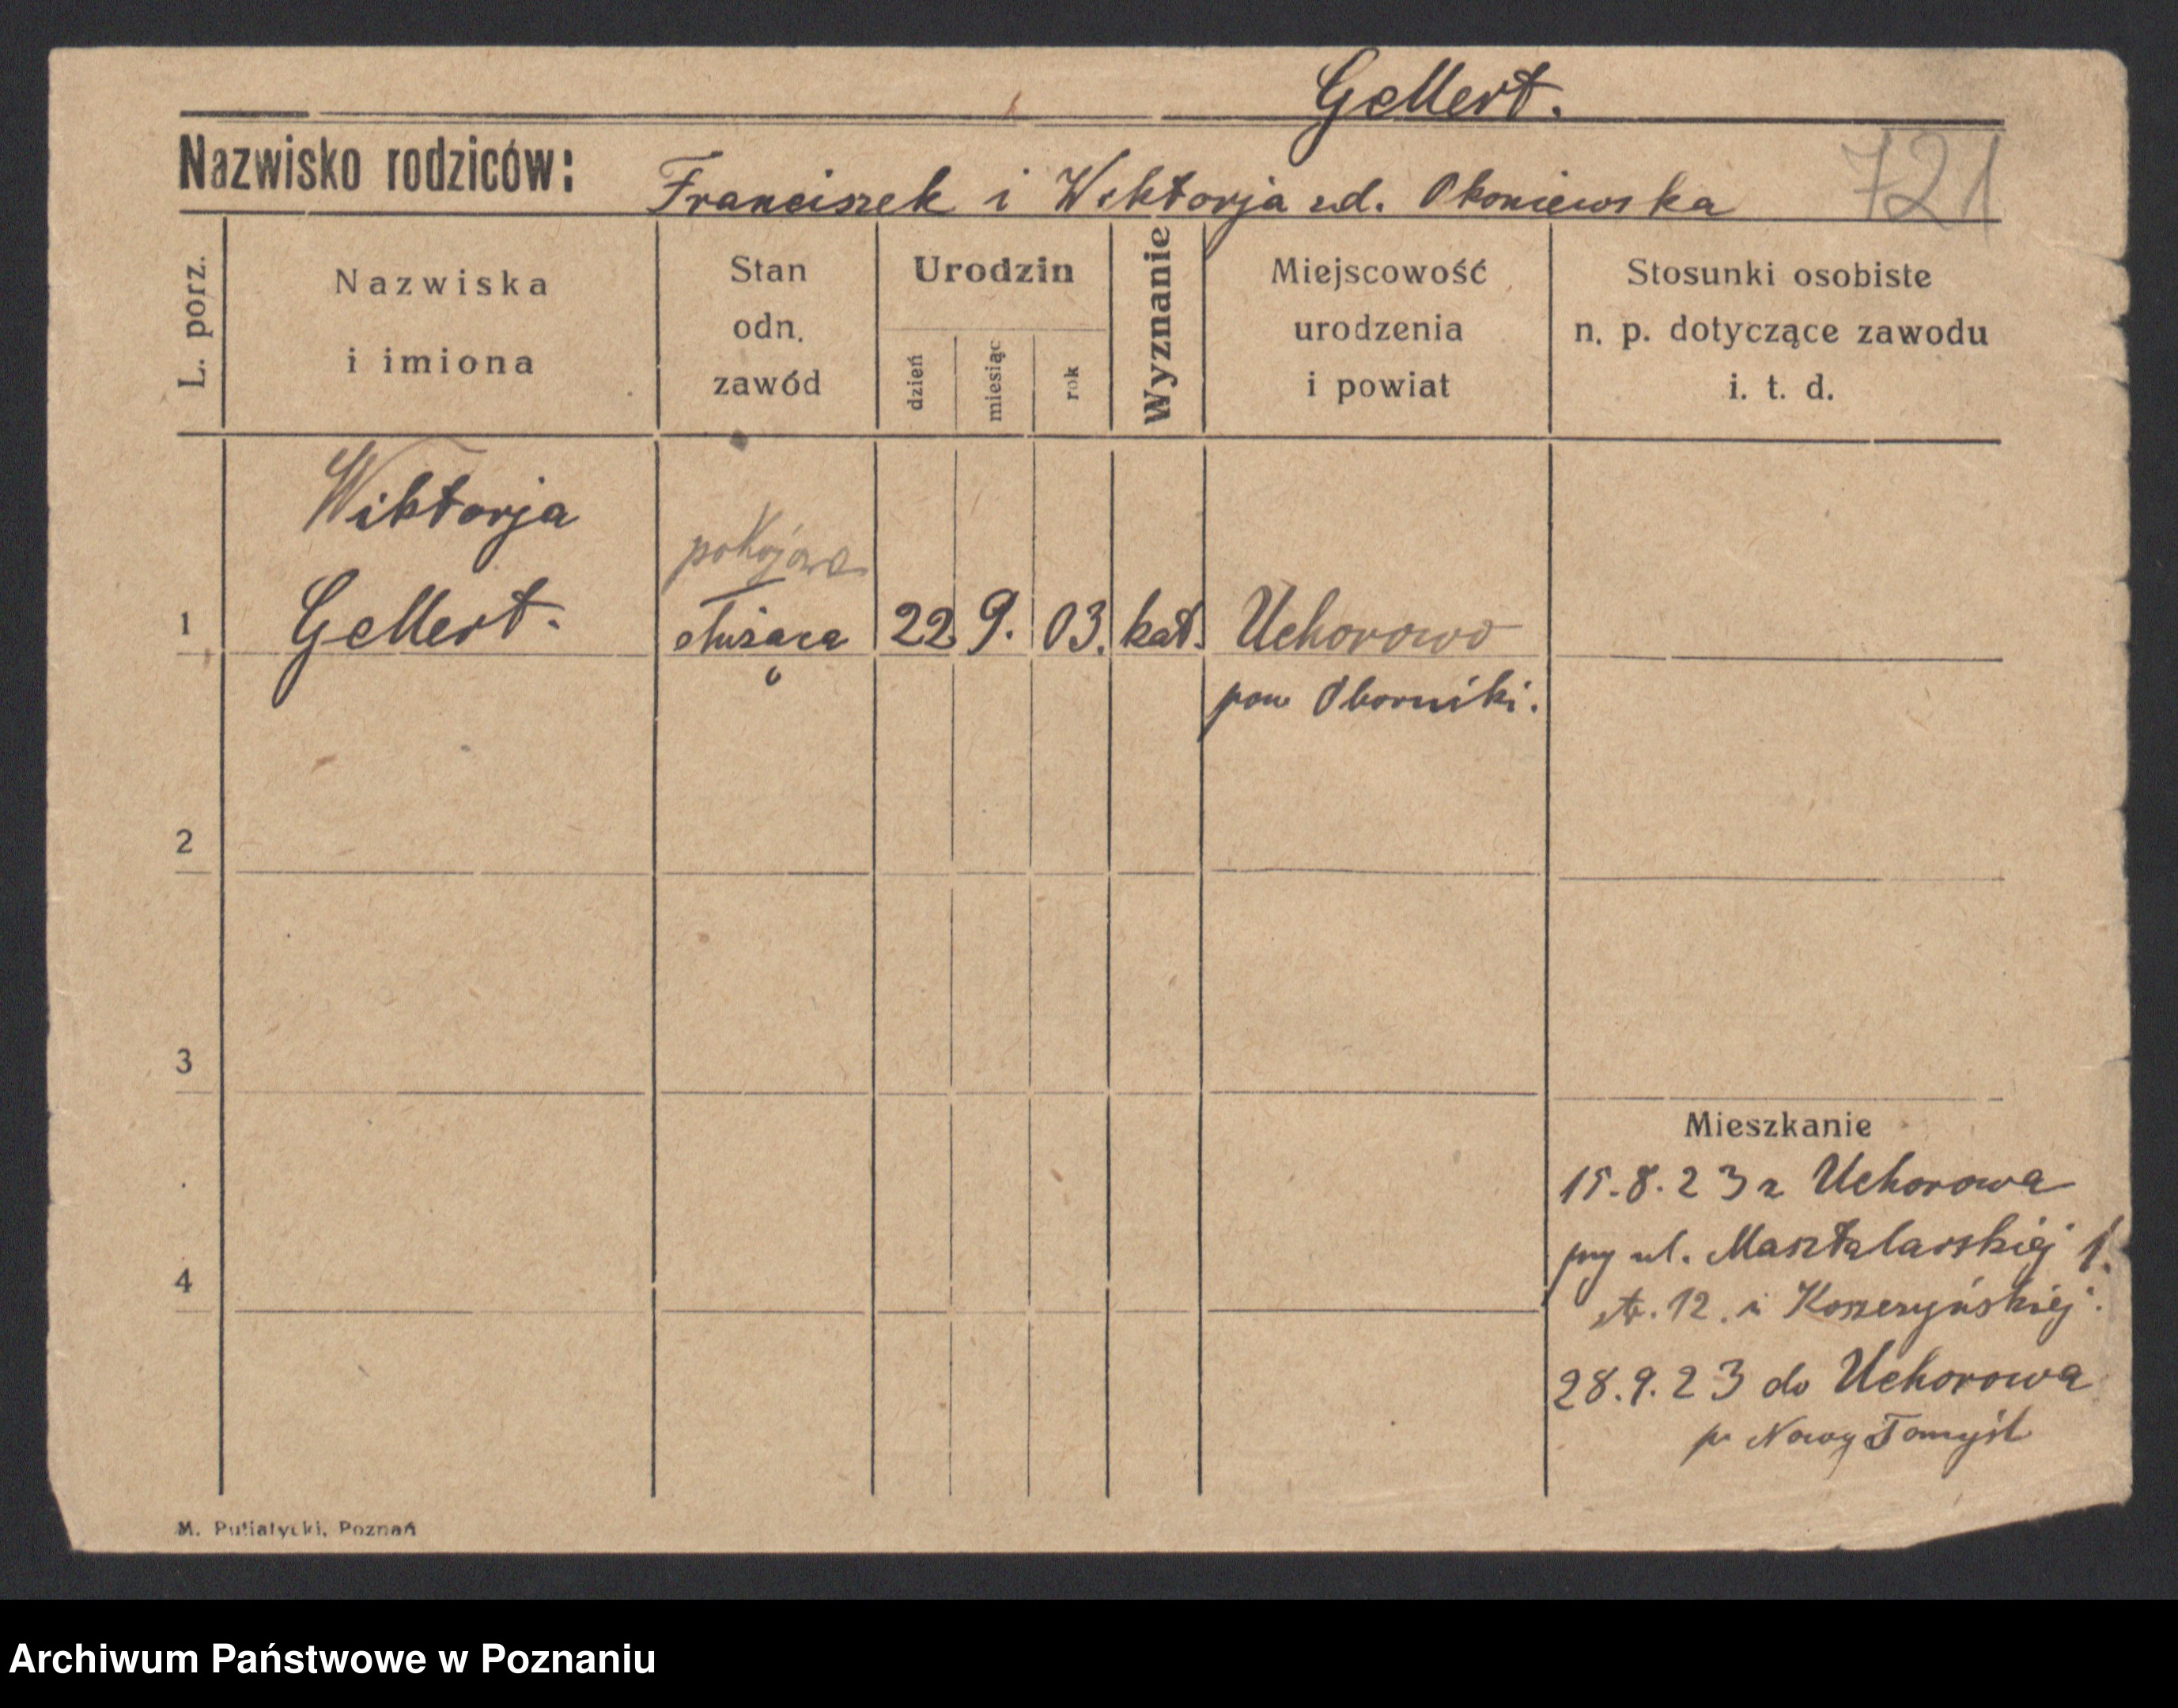 Gellert.
Nazwisko rodziców: Franciszek i Wiktorja zd. Okoniewska 721
L. porz.
Nazwiska
i imiona
Stan
odn.
zawód
Urodzin
dzień
miesiąc
rok
Wyznanie
Miejscowość
urodzenia
i powiat
Stosunki osobiste
n. p. dotyczące zawodu
i. t. d.
Wiktorja
pokojowa
1 Gellert. służąca 22 9. 03. kat. Uchorowo
pow Oborniki.
2
3
Mieszkanie
15.8.23 z Uchorowa
przy ul. Masztalarskiej 1.
4
str. 12. u Koszczyńskiej.
28.9.23 do Uchorowa
p Nowy Tomyśl
M. Putiatycki, Poznań
Archiwum Państwowe w Poznaniu